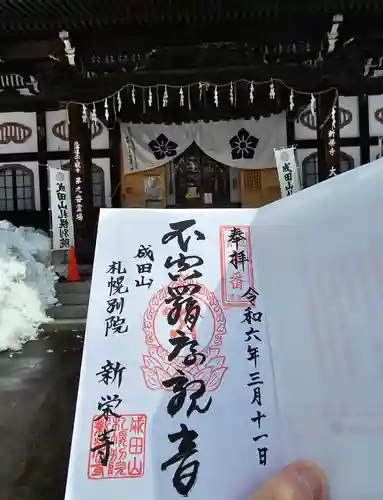 奉拝
令和六年三月十一日
不空羂索観音
成田山
札幌別院
新栄寺
成田山札幌別院
成田山